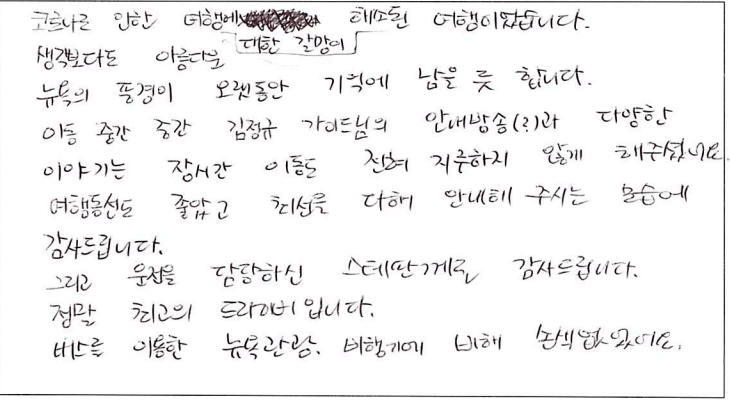 코로나로 인한 여행에 대한 갈망이 해소된 여행이었습니다.
생각보다도 아름다운
뉴욕의 풍경이 오랫동안 기억에 남을 듯 합니다.
이동 중간 중간 김정규 가이드님의 안내방송(?)과 다양한
이야기는 장시간 이동도 전혀 지루하지 않게 해주셨네요.
여행동선도 좋았고 최선을 다해 안내해 주시는 모습에
감사드립니다.
그리고 운전을 담당하신 스테판께도 감사드립니다.
정말 최고의 드라이버입니다.
버스를 이용한 뉴욕관광. 비행기에 비해 손색 없었어요.